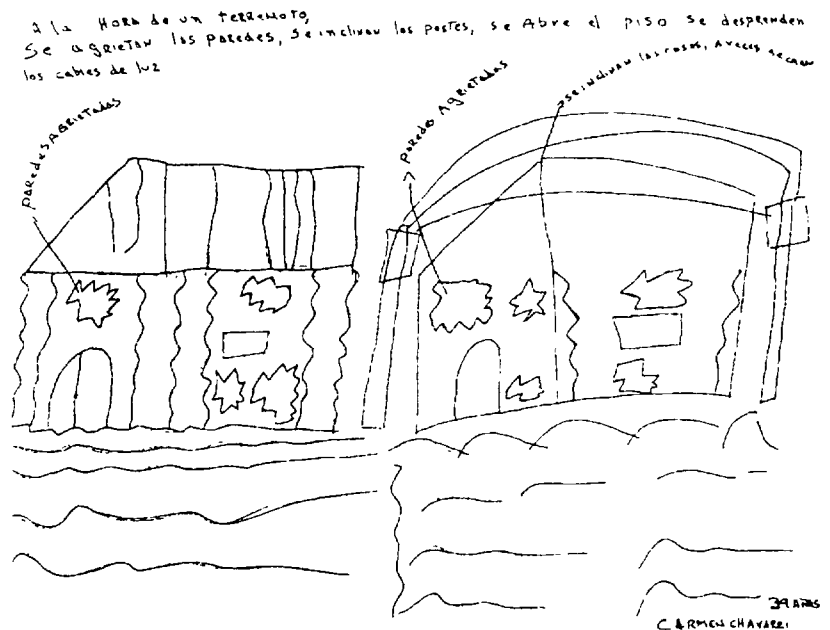 A la HORA de un terremoto,
Se agrietan las paredes, se inclinan los postes, se Abre el piso se desprenden
los cables de luz
paredes Agrietadas
paredes Agrietadas
se inclinan las casas, Aveces se caen
39 AÑOS
CARMEN CHAVARRI